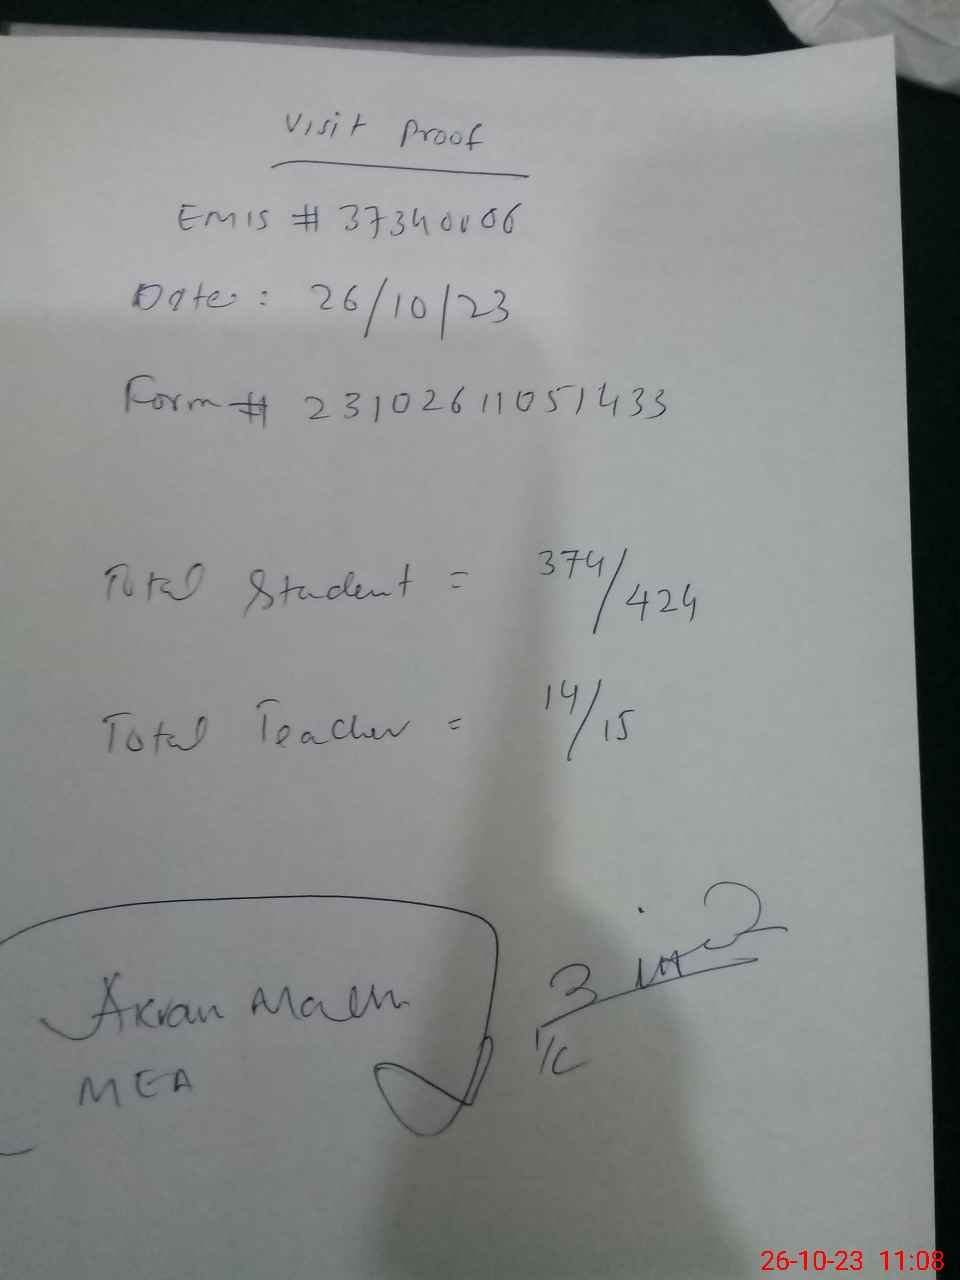 Visit Proof
EMIS # 37340006
Date: 26/10/23
Form # 23102611051433
Total Student = 374/424
Total Teacher = 14/15
Akram
MEA
I/C
26-10-23 11:08